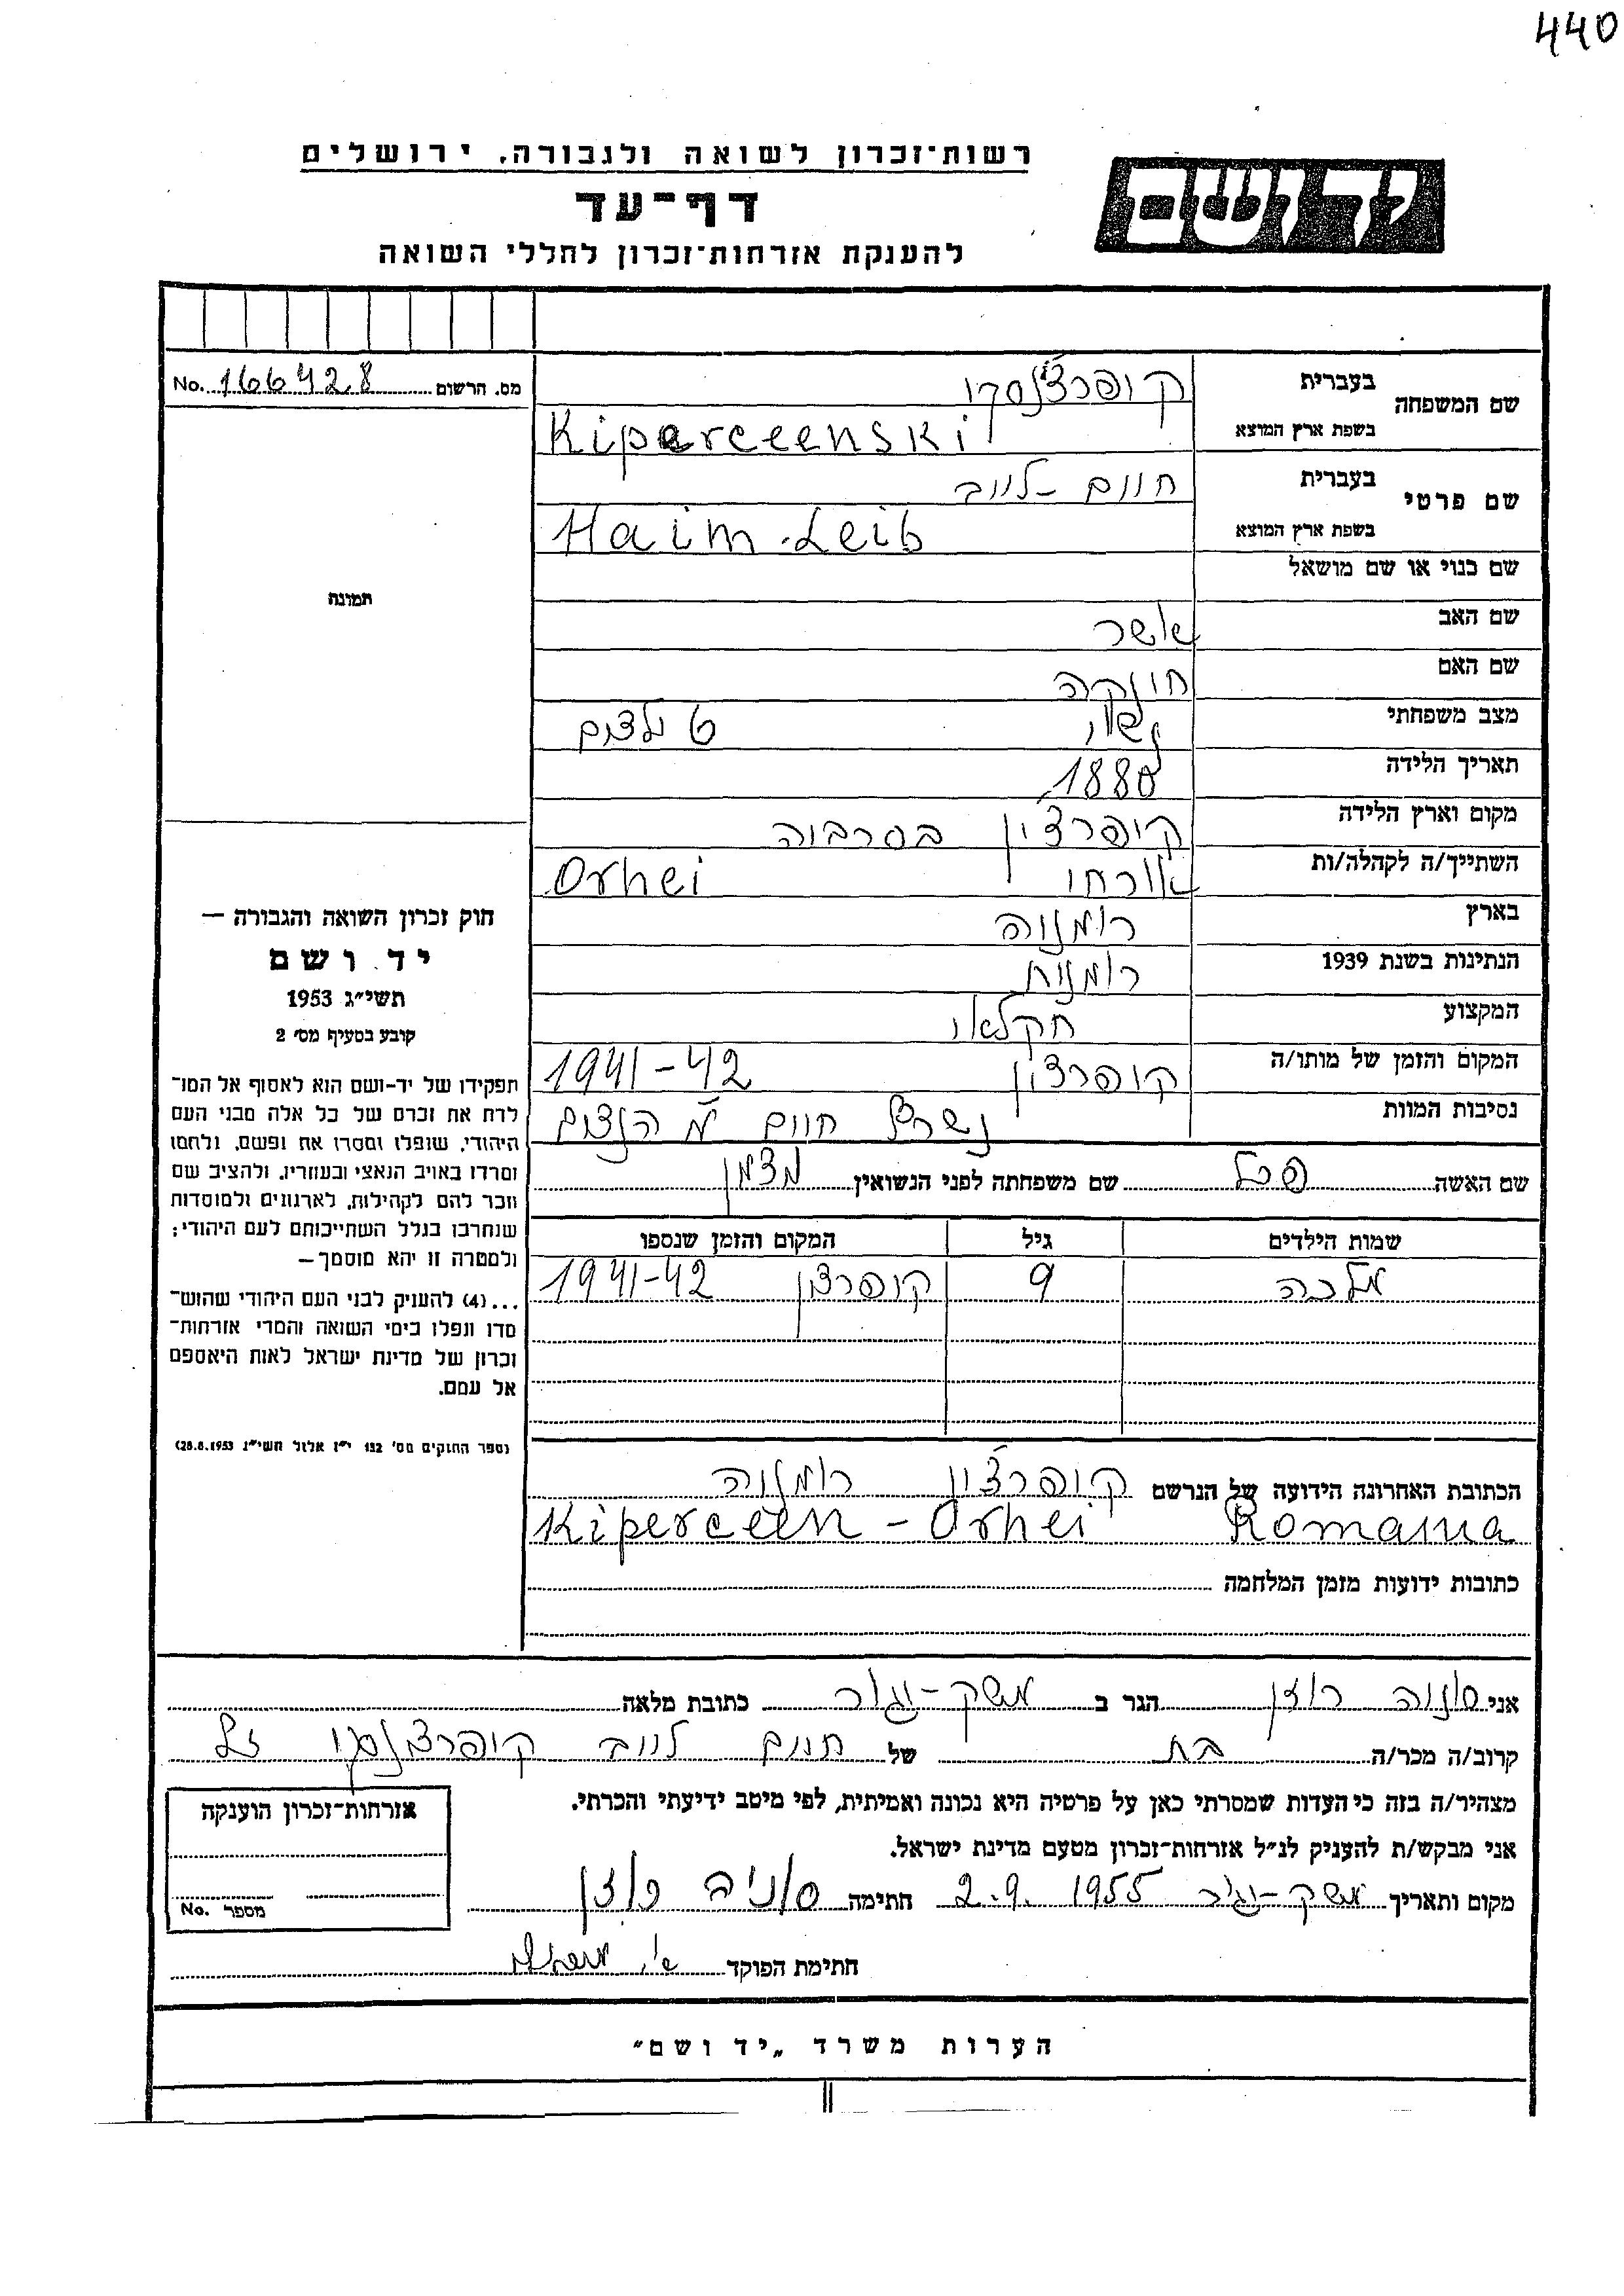 440
רשות־זכרון לשואה ולגבורה, ירושלים
יד ושם
דף־עד
להענקת אזרחות־זכרון לחללי השואה
מס. הרשום No. 166428
שם המשפחה
בעברית קיפרצ'נסקי
בשפת ארץ המוצא Kiperceenski
שם פרטי
בעברית חיים - לייב
בשפת ארץ המוצא Haim-Leib
שם כנוי או שם מושאל
שם האב אשר
שם האם חייקה
מצב משפחתי נשוי 6 ילדים
תאריך הלידה 1880
מקום וארץ הלידה קיפרצ'ין בסרביה
השתייך/ה לקהלה/ות אורחי Orhei
בארץ רומניה
הנתינות בשנת 1939 רומנית
המקצוע חקלאי
המקום והזמן של מותו/ה קיפרצ'ין 1941-42
נסיבות המוות נשרף חיים ע"י הנאצים
שם האשה פרל שם משפחתה לפני הנשואין
שמות הילדים גיל המקום והזמן שנספו
מלכה 9 קיפרצ'ין 1941-42
הכתובת האחרונה הידועה של הנרשם קיפרצ'ין רומניה
Kiperceen - Orhei Romania
כתובות ידועות מזמן המלחמה
תמונה
חוק זכרון השואה והגבורה —
יד ושם
תשי״ג 1953
קובע בסעיף מס׳ 2
תפקידו של יד-ושם הוא לאסוף אל המו־
לדת את זכרם של כל אלה מבני העם
היהודי, שנפלו ומסרו את נפשם, ולחמו
ומרדו באויב הנאצי ובעוזריו, ולהציב שם
וזכר להם לקהילות, לארגונים ולמוסדות
שנחרבו בגלל השתייכותם לעם היהודי;
ולמטרה זו יהא מוסמך—
...(4) להעניק לבני העם היהודי שהוש־
מדו ונפלו בימי השואה והמרי אזרחות־
זכרון של מדינת ישראל לאות היאספם
אל עמם.
(ספר החוקים מס׳ 132 י״ז אלול תשי״ג 28.8.1953)
אני סוניה רוזן הגר ב משק-יגור כתובת מלאה
קרוב/ה מכר/ה בת של חיים לייב קיפרצ'נסקי ז"ל
מצהיר/ה בזה כי העדות שמסרתי כאן על פרטיה היא נכונה ואמיתית, לפי מיטב ידיעתי והכרתי.
אני מבקש/ת להעניק לנ״ל אזרחות־זכרון מטעם מדינת ישראל.
מקום ותאריך משק-יגור 2.9.1955 חתימה סוניה רוזן
חתימת הפוקד
אזרחות־זכרון הוענקה
מספר No.
הערות משרד „יד ושם״